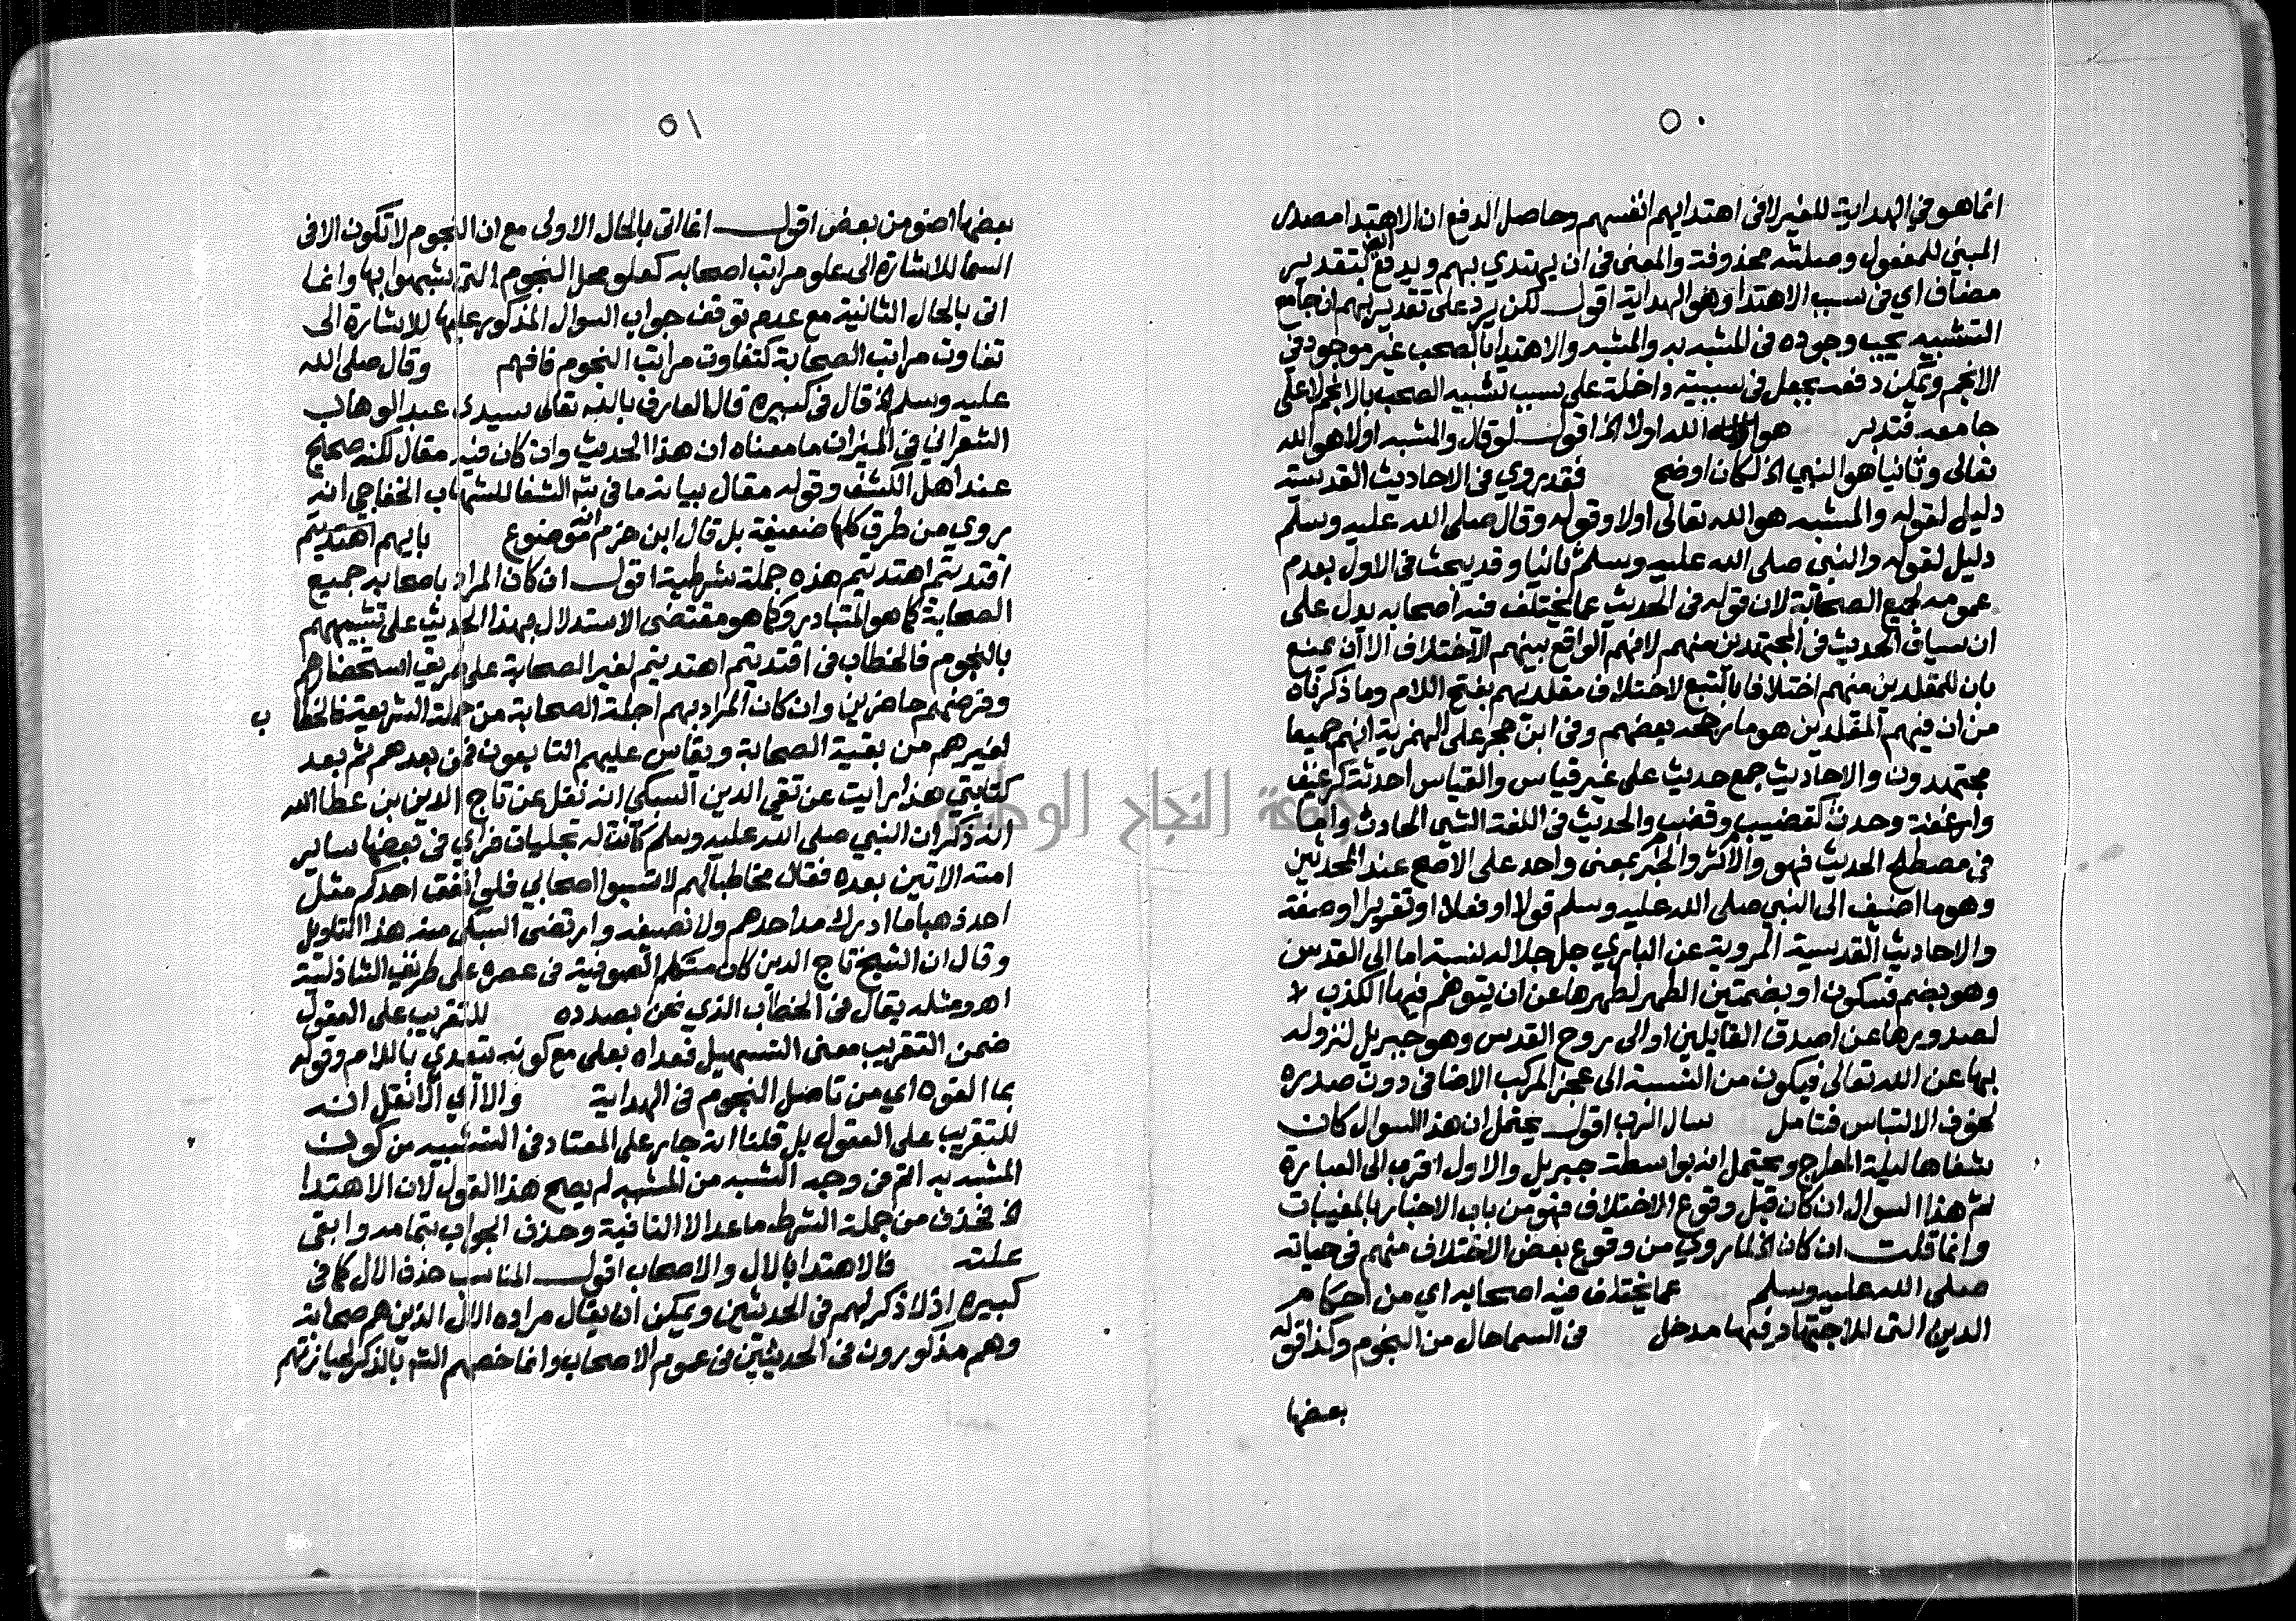 ٥٠
انما هو في الهداية للغير لا في اهتدايهم انفسهم وحاصل الدفع ان الاهتدا مصدر
المبني للمفعول وصلته محذوفة والمعنى في ان يهتدي بهم ويدفع ايضا بتقدير
مضاف اي في سبب الاهتدا وهو الهداية اقول لكن يرد على تقدير بهم ان جامع
التشبيه يجب وجوده في المشبه به والمشبه والاهتدا بالصحب غير موجود في
الانجم ويمكن دفعه بجعل في سببية داخلة على سبب تشبيه الصحب بالانجم لا على
جامعه فتدبر هو الله اولا الخ اقول لو قال والمشبه اولا هو الله
تعالى وثانيا هو النبي الخ لكان اوضح فقد روي في الاحاديث القدسية
دليل لقوله والمشبه هو الله تعالى اولا وقوله وقال صلى الله عليه وسلم
دليل لقوله والنبي صلى الله عليه وسلم ثانيا وقد يبحث في الاول بعدم
عمومه لجميع الصحابة لان قوله في الحديث عما يختلف فيه اصحابه يدل على
ان سياق الحديث في المجتهدين منهم لانهم الواقع بينهم الاختلاف الا ان يمنع
بان للمقلدين منهم اختلافا بالتبع لاختلاف مقلديهم بفتح اللام وما ذكرناه
من ان فيهم المقلدين هو ما رجحه بعضهم وفي ابن حجر على الهمزية انهم جميعا
مجتهدون والاحاديث جمع حديث على غير قياس والقياس احدثة كرغيف
وارغفة وحدث كقضيب وقضب والحديث في اللغة الشي الحادث واما
في مصطلح الحديث فهو والاثر والخبر بمعنى واحد على الاصح عند المحدثين
وهو ما اضيف الى النبي صلى الله عليه وسلم قولا او فعلا او تقريرا او صفة
والاحاديث القدسية المروية عن الباري جل جلاله نسبة اما الى القدس
وهو بضم فسكون او بضمتين الطهر لطهرها عن ان يتوهم فيها الكذب لا
لصدورها عن اصدق القايلين او الى روح القدس وهو جبريل لنزوله
بها عن الله تعالى فيكون من النسبة الى عجز المركب الاضافي دون صدره
لخوف الالتباس فتامل سال الرب اقول يحتمل ان هذا السوال كان
شفاها ليلة المعراج ويحتمل انه بواسطة جبريل والاول اقرب الى العبارة
ثم هذا السوال ان كان قبل وقوع الاختلاف فهو من باب الاخبار بالمغيبات
وانما قلت ان كان الخ لما روي من وقوع بعض الاختلاف منهم في حياته
صلى الله عليه وسلم عما يختلف فيه اصحابه اي من احكام
الدين التي للاجتهاد فيها مدخل في السما حال من النجوم وكذا قوله
بعضها
٥١
بعضها اضو من بعض اقول انما اتى بالحال الاولى مع ان النجوم لا تكون الا في
السما للاشارة الى علو مراتب اصحابه كعلو محل النجوم التي شبهوا بها وانما
اتى بالحال الثانية مع عدم توقف جواب السوال المذكور عليها للاشارة الى
تفاوت مراتب الصحابة كتفاوت مراتب النجوم فافهم وقال صلى الله
عليه وسلم الخ قال في كبيره قال العارف بالله تعالى سيدي عبد الوهاب
الشعراني في الميزان ما معناه ان هذا الحديث وان كان فيه مقال لكنه صحيح
عند اهل الكشف وقوله مقال بيانه ما في شر الشفا للشهاب الخفاجي انه
روي من طرق كلها ضعيفة بل قال ابن حزم انه موضوع بايهم اهتديتم
اقتديتم اهتديتم هذه جملة شرطية اقول ان كان المراد باصحابه جميع
الصحابة كما هو المتبادر وكما هو مقتضى الاستدلال بهذا الحديث على تشبيههم
بالنجوم فالخطاب في اقتديتم اهتديتم لغير الصحابة على طريق استحضارهم
وفرضهم حاضرين وان كان المراد بهم اجلة الصحابة من حملة الشريعة فالخطاب
لغيرهم من بقية الصحابة ويقاس عليهم التابعون فمن بعدهم ثم بعد
كتابتي هذا رايت عن تقي الدين السبكي انه نقل عن تاج الدين بن عطا الله
انه ذكر ان النبي صلى الله عليه وسلم كانت له تجليات فراي في بعضها ساير
امته الاتين بعده فقال مخاطبا لهم لا تسبوا اصحابي فلو انفق احدكم مثل
احد ذهبا ما ادرك مد احدهم ولا نصيفه وارتضى السبكي منه هذا التاويل
وقال ان الشيخ تاج الدين كان متكلم الصوفية في عصره على طريق الشاذلية
اهـ ومثله يقال في الخطاب الذي نحن بصدده للتقريب على العقول
ضمن التقريب معنى التسهيل فعداه بعلى مع كونه يتعدى باللام وقوله
بما القوه اي من تاصل النجوم في الهداية والا اي الا نقل انه
للتقريب على العقول بل قلنا انه جار على المعتاد في التشبيه من كون
المشبه به اتم في وجه الشبه من المشبه لم يصح هذا القول لان الاهتدا
الخ فحذف من جملة الشرط ما عدا لا النافية وحذف الجواب بتمامه وابقى
علته فالاهتدا بالال والاصحاب اقول المناسب حذف الال كما في
كبيره اذ لا ذكر لهم في الحديثين ويمكن ان يقال مراده الال الذين هم صحابة
وهم مذكورون في الحديثين في عموم الاصحاب وانما خصهم الش بالذكر لحيازتهم
جامعة النجاح الوطنية